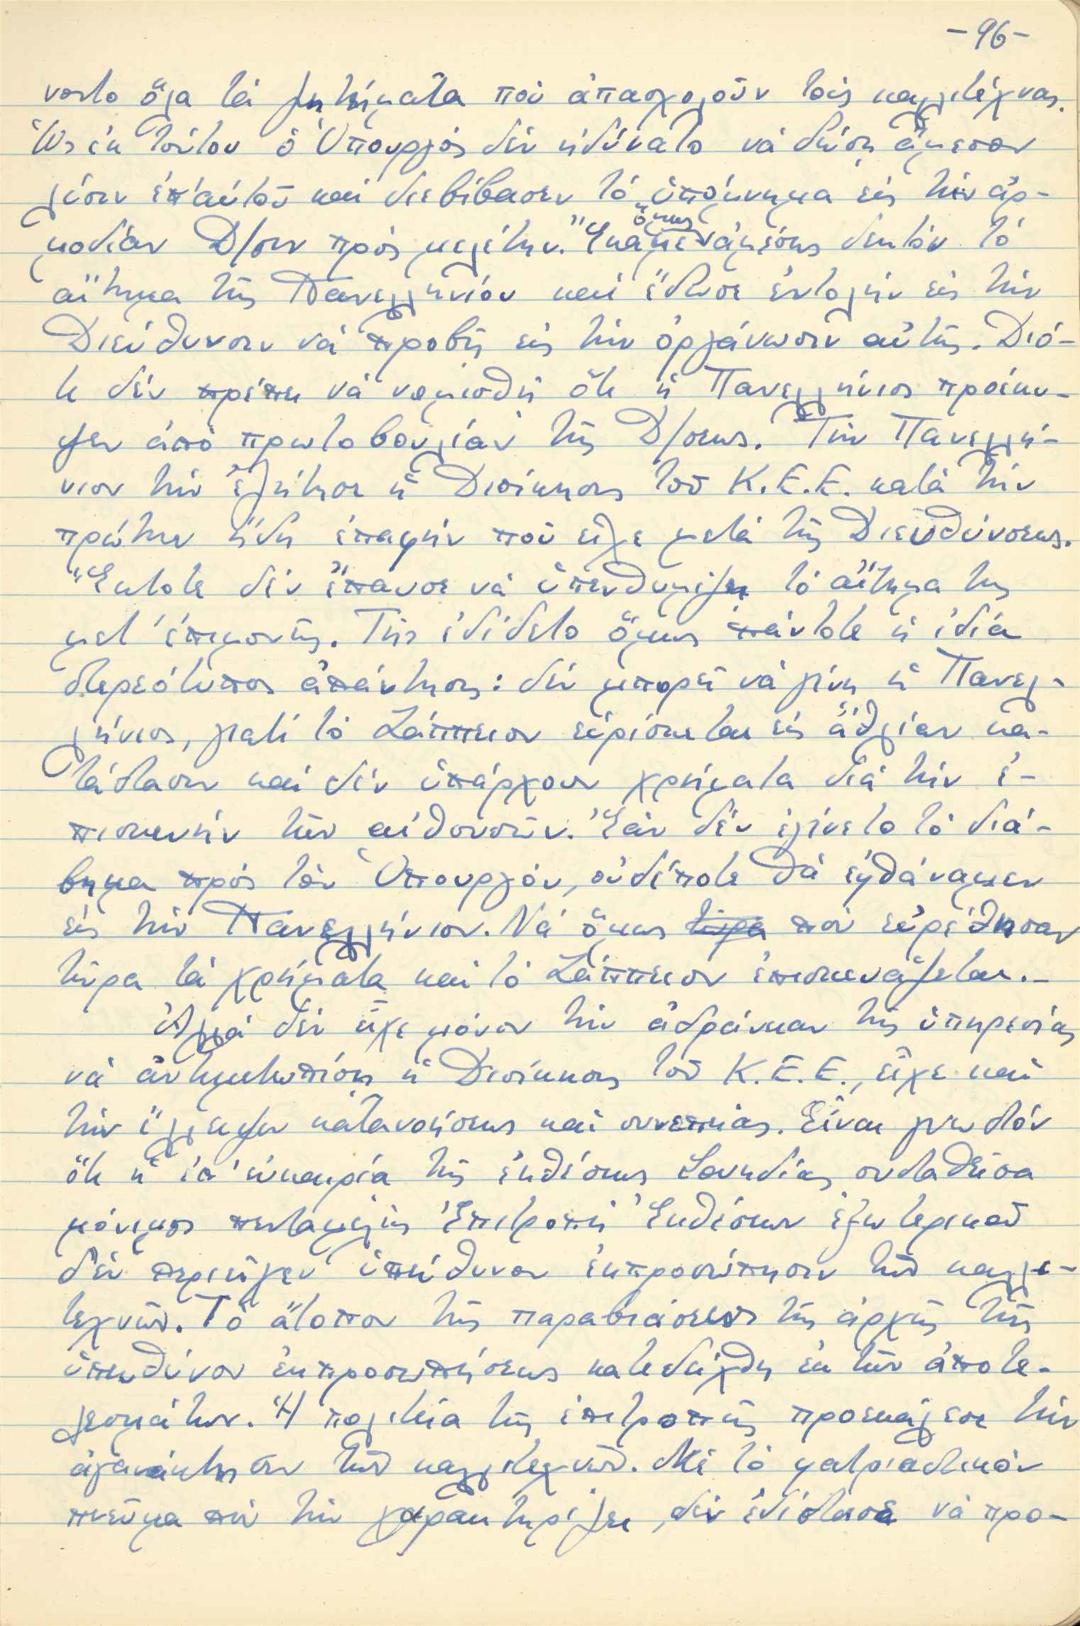 -96-
νοντο ὅλα τά ζητήματα πού ἀπασχολοῦν τούς καλλιτέχνας.
Ὡς ἐκ τούτου ὁ Ὑπουργός δέν ἠδύνατο νά δώσῃ ἄμεσον
λύσιν ἐπ' αὐτοῦ καί διεβίβασεν τό ὑπόμνημα εἰς τήν ἁρ-
μοδίαν Δ/σιν πρός μελέτην. Ἔκαμε ὅμως ἀμέσως δεκτόν τό
αἴτημα τῆς Πανελληνίου καί ἔδωσε ἐντολήν εἰς τήν
Διεύθυνσιν νά προβῇ εἰς τήν ὀργάνωσιν αὐτῆς. Διό-
τι δέν πρέπει νά νομισθῇ ὅτι ἡ Πανελλήνιος προέκυ-
ψεν ἀπό πρωτοβουλίαν τῆς Δ/σεως. Τήν Πανελλή-
νιον τήν ἐζήτησε ἡ Διοίκησις τοῦ Κ.Ε.Ε. κατά τήν
πρώτην ἤδη ἐπαφήν πού εἶχε μετά τῆς Διευθύνσεως.
Ἔκτοτε δέν ἔπαυσε νά ὑπενθυμίζει τό αἴτημα της
μετ' ἐπιμονῆς. Τῆς ἐδίδετο ὅμως πάντοτε ἡ ἰδία
στερεότυπος ἀπάντησις: δέν μπορεῖ νά γίνῃ ἡ Πανελ-
λήνιος, γιατί τό Ζάππειον εὑρίσκεται εἰς ἀθλίαν κα-
τάστασιν καί δέν ὑπάρχουν χρήματα διά τήν ἐ-
πισκευήν τῶν αἰθουσῶν. Ἐάν δέν ἐγίνετο τό διά-
βημα πρός τόν Ὑπουργόν, οὐδέποτε θά ἐφθάναμεν
εἰς τήν Πανελλήνιον. Νά ὅμως τώρα πού εὑρέθησαν
τώρα τά χρήματα καί τό Ζάππειον ἐπισκευάζεται.-
Ἀλλά δέν εἶχε μόνον τήν ἀδράνειαν τῆς ὑπηρεσίας
νά ἀντιμετωπίσῃ ἡ Διοίκησις τοῦ Κ.Ε.Ε., εἶχε καί
τήν ἔλλειψιν κατανοήσεως καί συνεπείας. Εἶναι γνωστόν
ὅτι ἡ ἐπ' εὐκαιρίᾳ τῆς ἐκθέσεως Σουηδίας συσταθεῖσα
μόνιμος πενταμελής Ἐπιτροπή Ἐκθέσεων ἐξωτερικοῦ
δέν περιεῖχεν ὑπεύθυνον ἐκπροσώπησιν τῶν καλλι-
τεχνῶν. Τό ἄτοπον τῆς παραβιάσεως τῆς ἀρχῆς τῆς
ὑπευθύνου ἐκπροσωπήσεως κατεδείχθη ἐκ τῶν ἀποτε-
λεσμάτων. Ἡ πολιτεία τῆς ἐπιτροπῆς προεκάλεσε τήν
ἀγανάκτησιν τῶν καλλιτεχνῶν. Μέ τό φατριαστικόν
πνεῦμα πού τήν χαρακτηρίζει, δέν ἐδίστασε νά προ-